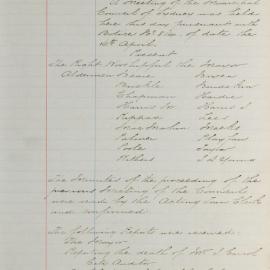 A Meeting of the Municipal
Council of Sydney was held
here this day pursuant with
Notice No 8 of date the
April
Present
The Right Worshipful the Mayor
Aldermen Beare Jensen
Buckle
Chapman Hardie
Harris Jno Harris J
Kippax Lees
Meeks
Palmer Playfair
Poole Taylor
Withers J. D. Young
The Minutes of the proceeding of the
previous Meeting of the Council
were read by the Acting Town Clerk
and confirmed
The following Reports were received:
The Mayor
Reporting the death of
City Auditor